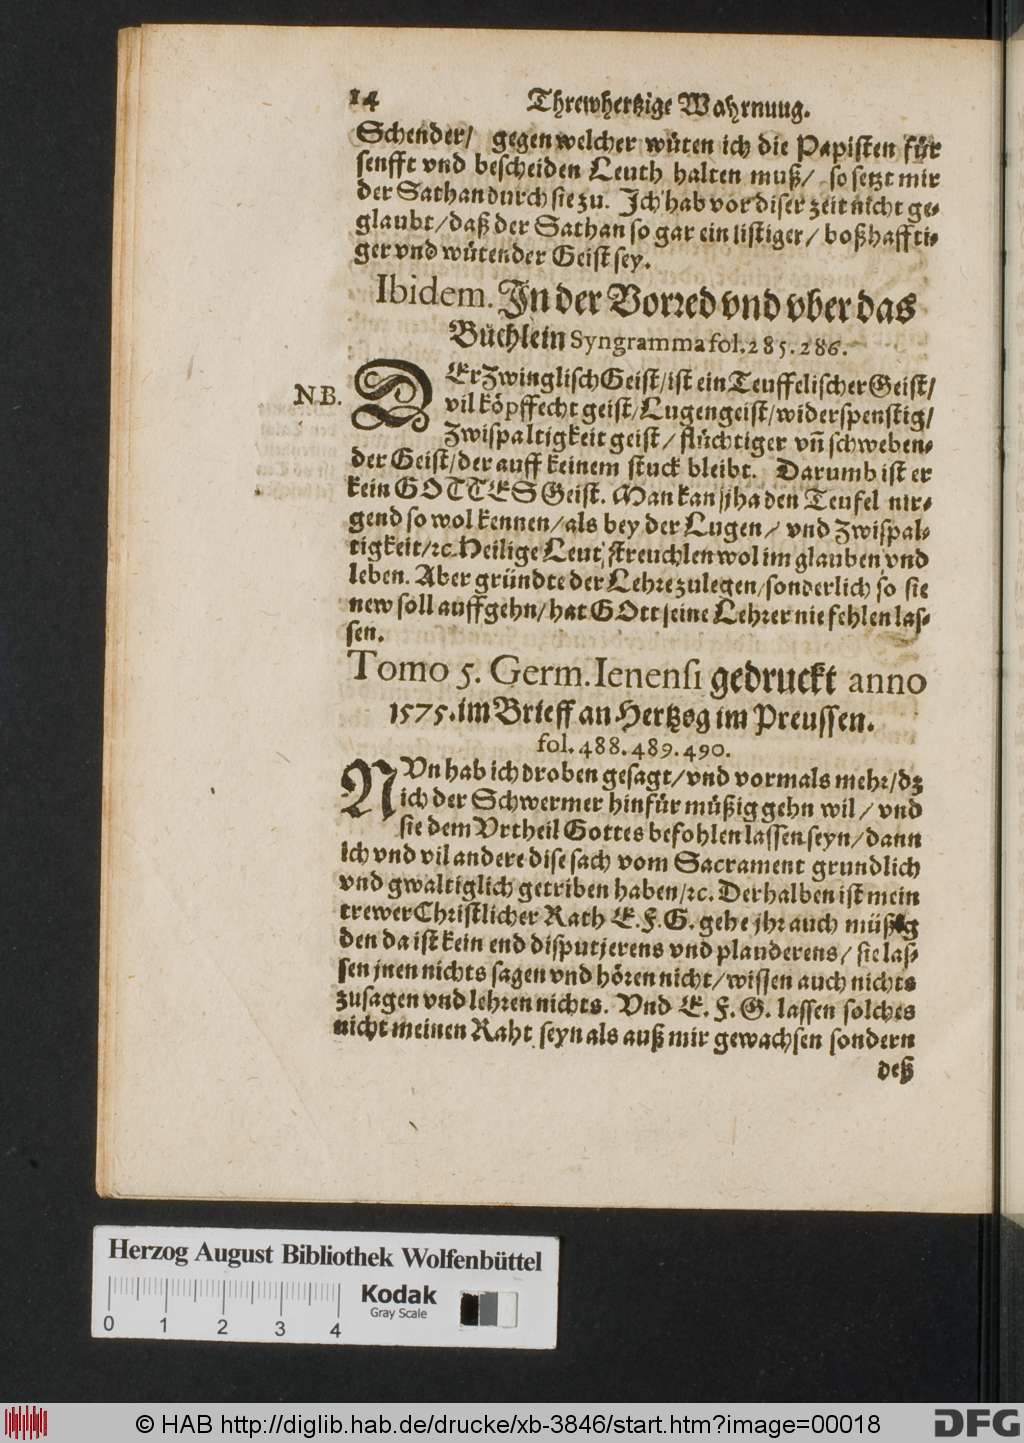 14 Threwhertzige Wahrnuug.
Schender/ gegen welcher wüten ich die Papisten für
senfft vnd bescheiden Leuth halten muß/ so setzt mir
der Sathan durch sie zu. Ich hab vor diser zeit nicht ge-
glaubt/ daß der Sathan so gar ein listiger/ boßhaffti-
ger vnd wütender Geist sey.
Ibidem. In der Vorred vnd vber das
Büchlein Syngramma fol. 285. 286.
N.B.
DEr Zwinglisch Geist/ ist ein Teuffelischer Geist/
vil köpffecht geist/ Lugengeist/ widerspenstig/
Zwispaltigkeit geist/ flüchtiger vñ schweben-
der Geist/ der auff keinem stuck bleibt. Darumb ist er
kein GOTTES Geist. Man kan jha den Teufel nir-
gend so wol kennen/ als bey der Lugen/ vnd Zwispal-
tigkeit/ ꝛc. Heilige Leut, streuchlen wol im glauben vnd
leben. Aber gründte der Lehre zulegen/ sonderlich so sie
new soll auffgehn/ hat GOtt seine Lehrer nie fehlen las-
sen.
Tomo 5. Germ. Ienensi gedruckt anno
1575. im Brieff an Hertzog im Preussen.
fol. 488. 489. 490.
NVn hab ich droben gesagt/ vnd vormals mehr/ dz
ich der Schwermer hinfür müßig gehn wil/ vnd
sie dem Vrtheil Gottes befohlen lassen seyn/ dann
ich vnd vil andere dise sach vom Sacrament grundlich
vnd gwaltiglich getriben haben/ ꝛc. Derhalben ist mein
trewer Christlicher Rath E. F. G. gehe jhr auch müßig
den da ist kein end disputjerens vnd plauderens/ sie las-
sen jnen nichts sagen vnd hören nicht/ wissen auch nichts
zusagen vnd lehren nichts. Vnd E. F. G. lassen solches
nicht meinen Raht seyn als auß mir gewachsen sondern
deß
Herzog August Bibliothek Wolfenbüttel
Kodak
Gray Scale
0 1 2 3 4
© HAB http://diglib.hab.de/drucke/xb-3846/start.htm?image=00018
DFG